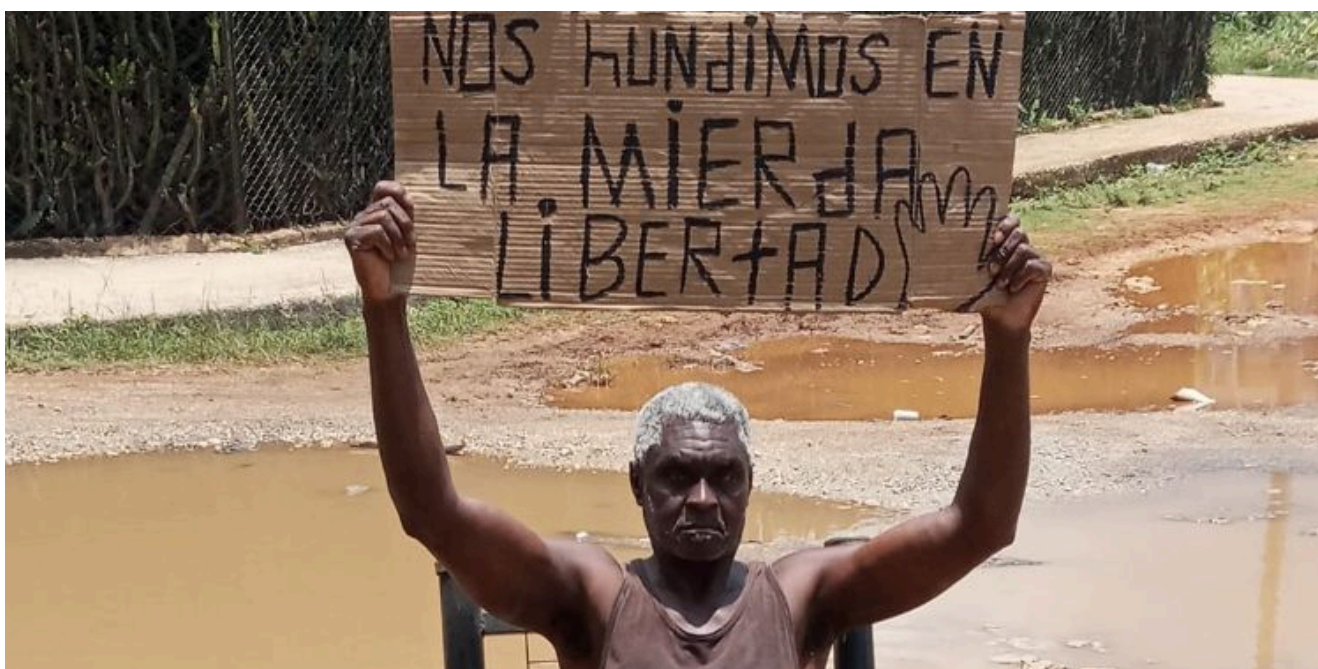 NOS hUNdiMOS EN
LA MiERdA
LiBERtAD